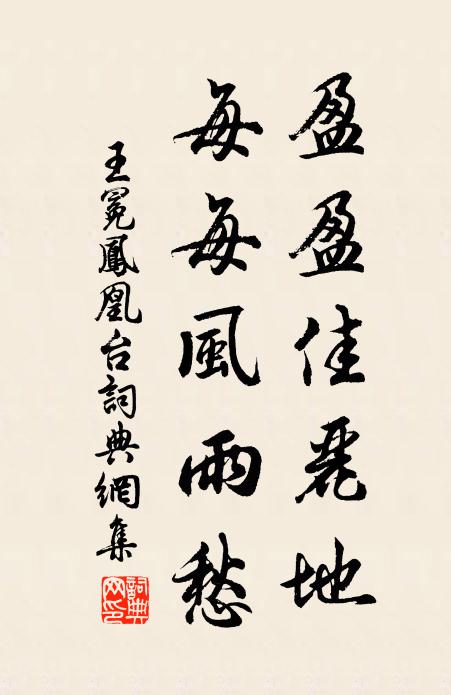 盈盈佳麗地
每每風雨愁
王冕鳳凰台詞典網集
詞典網印